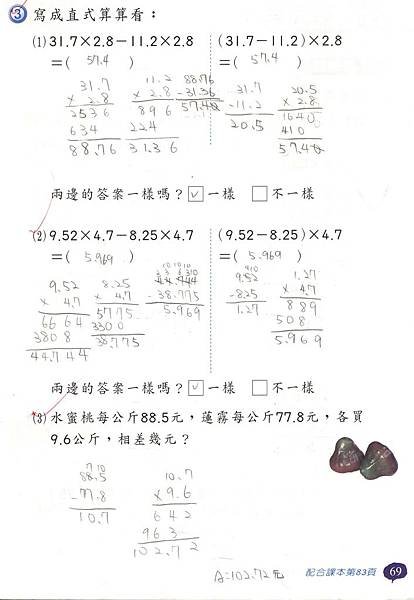 3 寫成直式算算看：
(1) 31.7×2.8－11.2×2.8 (31.7－11.2)×2.8
=( 57.4 ) =( 57.4 )
31.7 11.2 88.76 31.7 20.5
× 2.8 × 2.8 -31.36 -11.2 × 2.8
2536 896 57.40 20.5 1640
634 224 410
88.76 31.36 57.40
兩邊的答案一樣嗎？☑一樣 □不一樣
(2) 9.52×4.7－8.25×4.7 (9.52－8.25)×4.7
=( 5.969 ) =( 5.969 )
9.52 8.25 44.744 9.52 1.27
× 4.7 × 4.7 -38.775 -8.25 × 4.7
6664 5775 5.969 1.27 889
3808 3300 508
44.744 38.775 5.969
兩邊的答案一樣嗎？☑一樣 □不一樣
(3) 水蜜桃每公斤88.5元，蓮霧每公斤77.8元，各買
9.6公斤，相差幾元？
7 10
88.5 10.7
-77.8 × 9.6
10.7 642
963
102.72
A:102.72元
配合課本第83頁 69